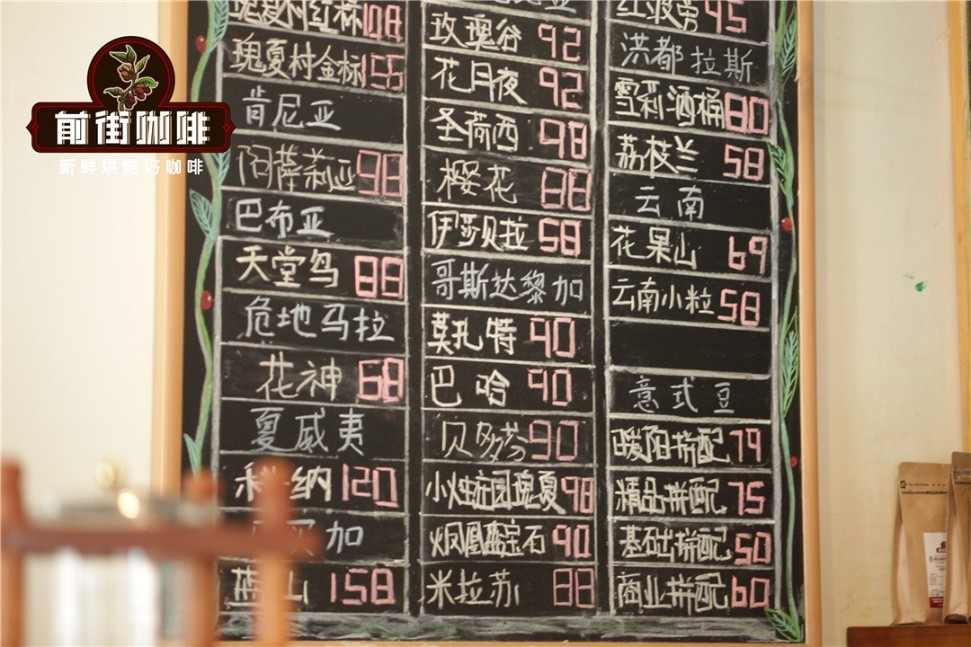 前街咖啡
新鲜烘焙好咖啡
瑰夏村红标108
瑰夏村金标155
肯尼亚
阿萨莉亚98
巴布亚
天堂鸟88
危地马拉
花神68
夏威夷
科纳120
加
蓝山158
玫瑰谷92
花月夜92
圣荷西98
樱花88
伊莎贝拉58
哥斯达黎加
莫扎特90
巴哈90
贝多芬90
小烛庄园瑰夏98
火凤凰 宝石90
米拉苏88
红波旁45
洪都拉斯
雪莉酒桶80
荔枝兰58
云南
花果山69
云南小粒58
意式豆
暖阳拼配79
精品拼配75
基础拼配50
商业拼配60